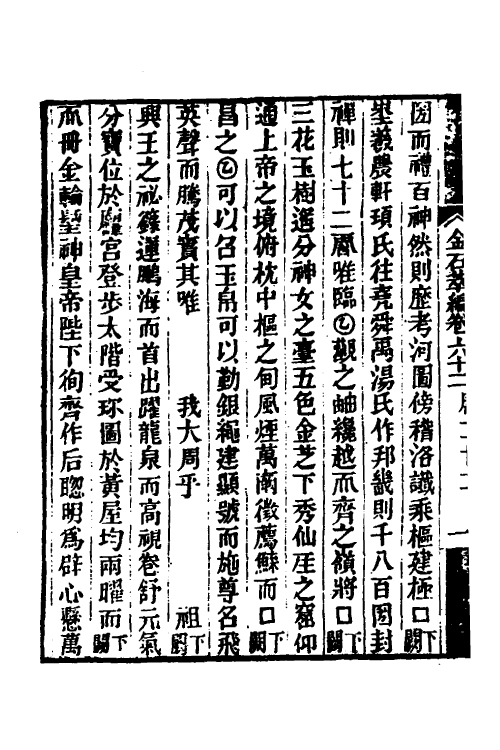 圀而禮百神然則歷考河圖傍稽洛讖乘樞建極口下闕
埊羲農軒頊氏往堯舜禹湯氏作邦畿則千八百圀封
禪則七十二䨻唯臨㋡觀之岫纔越而齊之嶺將口下闕
三花玉樹遙分神女之臺五色金芝下秀仙𤯔之窟仰
通上帝之境俯枕中樞之甸風煙萬
徵薦鯀而口下闕
昌之可以召玉帛可以勤銀繩建顯號而施尊名飛
英聲而騰茂實其唯 我大周乎 祖下闕
興王之祕籙運鵬海而首出躍龍泉而高視卷舒元氣
分寶位於廟宮登步太階受珎圖於黃屋均兩曜而下闕
𠕋金輪聖神皇帝陛下徇齊作后聰明爲辟心懸萬
金石萃編卷六十二 周二 一